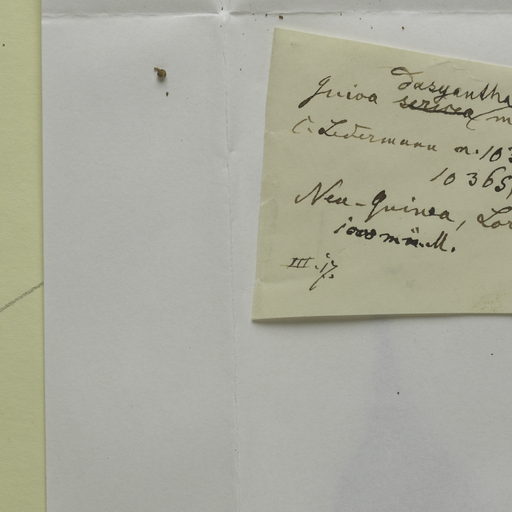 dasyantha
Guioa sericea (m
C. Ledermann n. 103
10 365,
Neu-Guinea, Lor
1000 m ü. M.
III. 17.